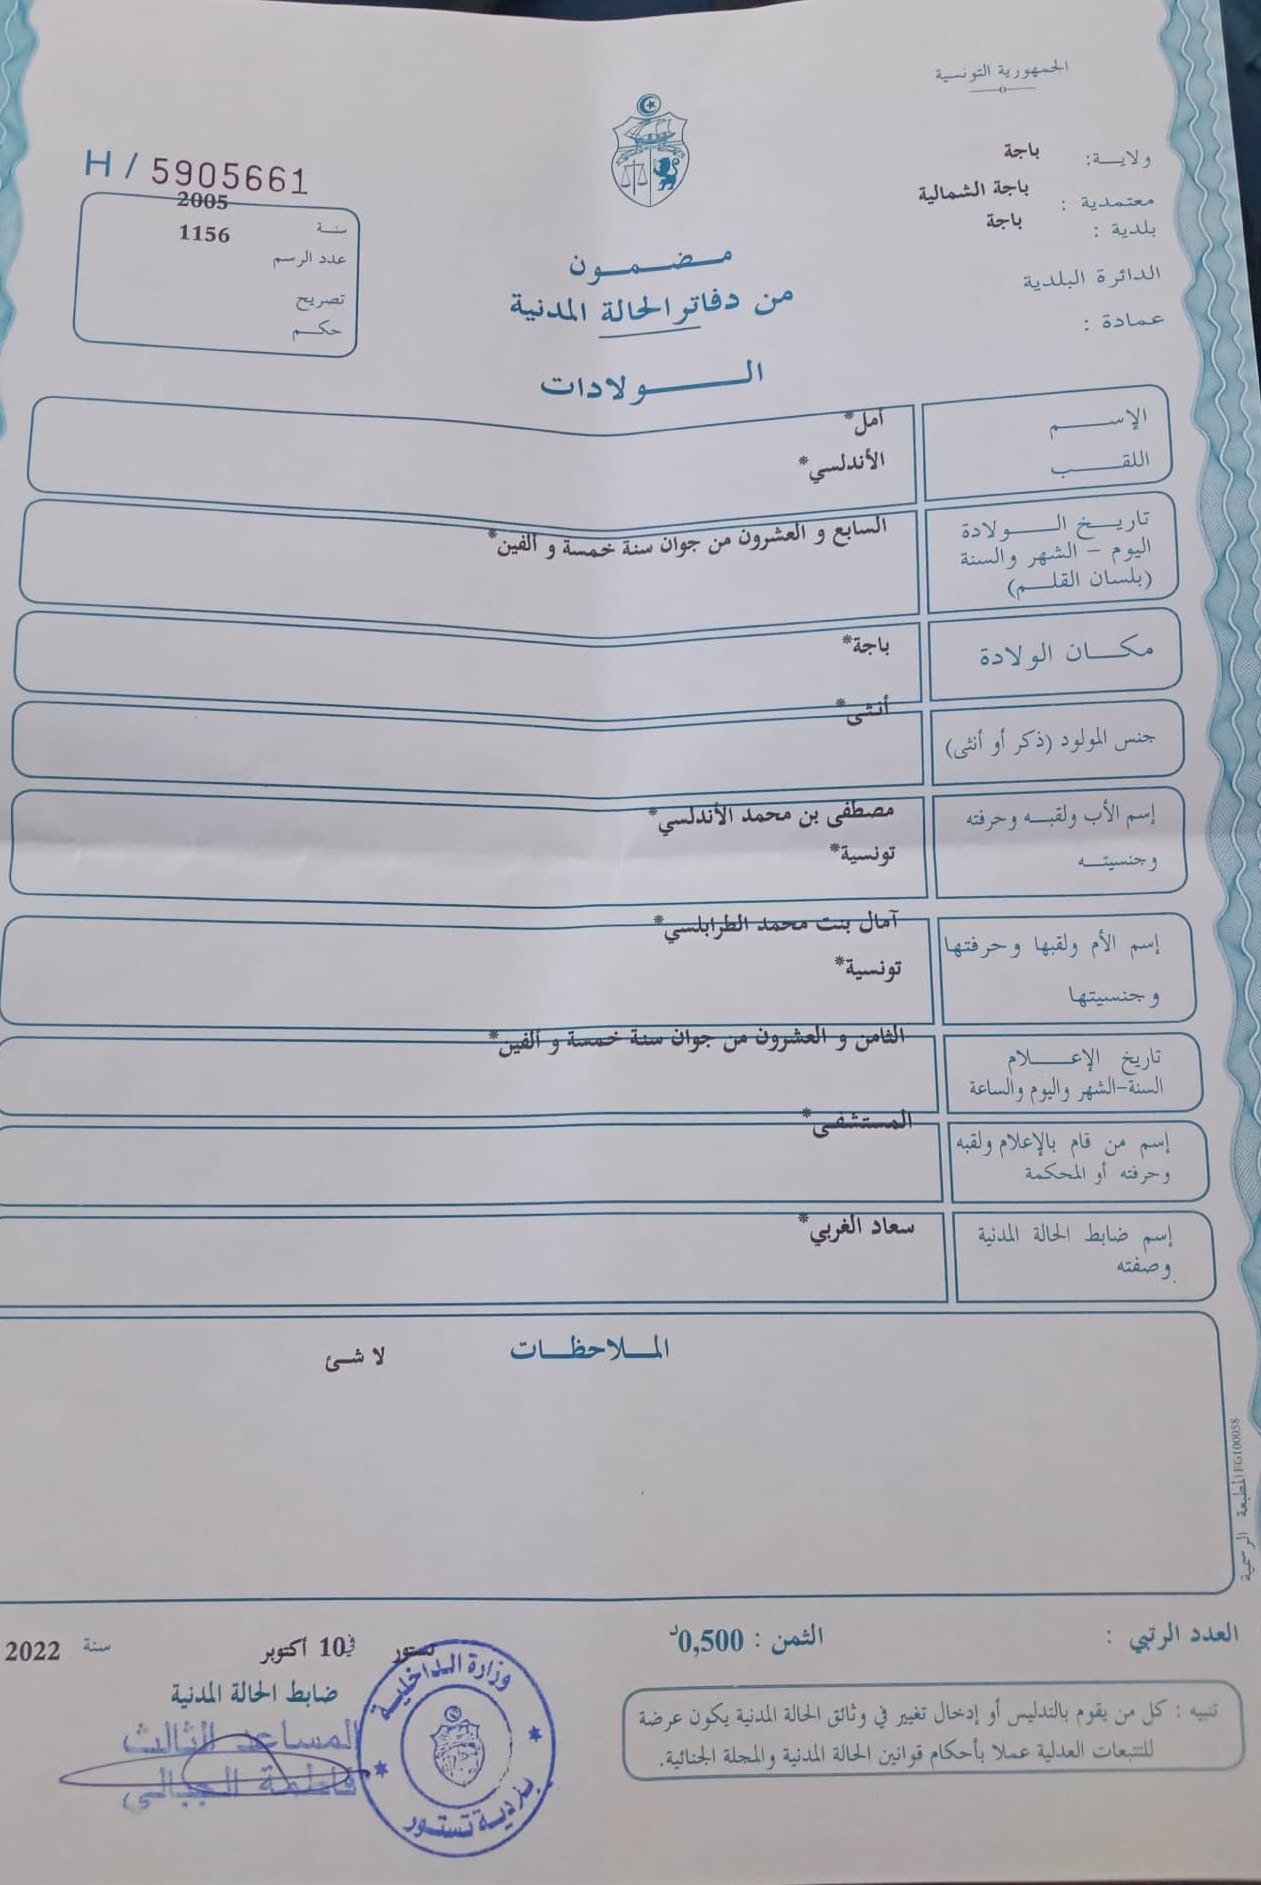 الجمهورية التونسية
ولايـــة: باجة
معتمدية : باجة الشمالية
بلدية : باجة
الدائرة البلدية
عمادة :
H / 5905661
سنـة 2005
عدد الرسم 1156
تصريح
حكـــم
مـــضـــمـــون
من دفاتر الحالة المدنية
الـــــــولادات
الإســـــــم أمل*
اللقـــــب الأندلسي*
تاريـــخ الـــــولادة السابع و العشرون من جوان سنة خمسة و ألفين*
اليوم – الشهر والسنة
(بلسان القلـــم)
مكـــان الولادة باجة*
جنس المولود (ذكر أو أنثى) أنثى*
إسم الأب ولقبـــه وحرفته مصطفى بن محمد الأندلسي*
وجنسيتـــه تونسية*
إسم الأم ولقبها وحرفتها آمال بنت محمد الطرابلسي*
وجنسيتها تونسية*
تاريخ الإعـــــلام الثامن و العشرون من جوان سنة خمسة و ألفين*
السنة-الشهر واليوم والساعة
إسم من قام بالإعلام ولقبه المستشفى*
وحرفته أو المحكمة
إسم ضابط الحالة المدنية سعاد الغربي*
وصفته
المـــلاحظـــات لا شئ
المطبعة الرسمية FG100058
العدد الرتبي :
الثمن : 0,500د
تستور في 10 أكتوبر سنة 2022
ضابط الحالة المدنية
المساعد الثالث
فاطمة الجبالي
وزارة الداخلية
بلدية تستور
تنبيه : كل من يقوم بالتدليس أو إدخال تغيير في وثائق الحالة المدنية يكون عرضة
للتتبعات العدلية عملا بأحكام قوانين الحالة المدنية والمجلة الجنائية.